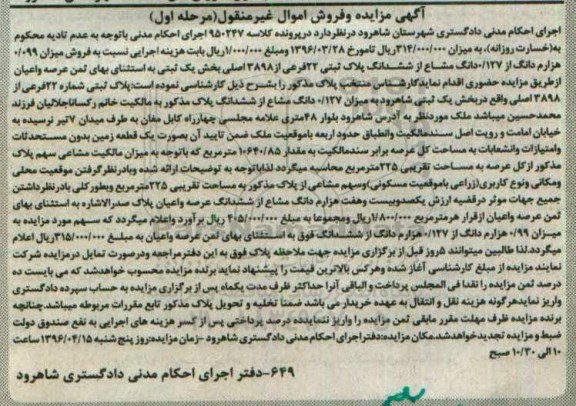 آگهی مزایده وفروش اموال غیرمنقول(مرحله اول)
اجرای احکام مدنی دادگستری شهرستان شاهرود درنظردارد درپرونده کلاسه ۹۵۰۲۴۷ اجرای احکام مدنی باتوجه به عدم تادیه محکوم
به(خسارت روزانه)، به میزان ۳۱۴/۰۰۰/۰۰۰ریال تامورخ ۱۳۹۶/۰۳/۲۸ ومبلغ ۱/۰۰۰/۰۰۰ریال بابت هزینه اجرایی نسبت به فروش میزان ۰/۰۹۹
هزارم دانگ از ۰/۱۲۷دانگ مشاع از ششدانگ پلاک ثبتی ۲۲فرعی از۳۸۹۸ اصلی بخش یک ثبتی به استثنای بهای ثمن عرصه واعیان
ازطریق مزایده حضوری اقدام نماید.کارشناس منتخب پلاک مذکور را بشرح ذیل کارشناسی نموده است:پلاک ثبتی شماره ۲۲فرعی از
۳۸۹۸ اصلی واقع دربخش یک ثبتی شاهرود به میزان ۰/۱۲۷ دانگ مشاع از ششدانگ پلاک مذکور به مالکیت خانم رکساناجلالیان فرزند
محمدحسین میباشد ملک موردنظر به آدرس شاهرود بلوار ۴۸متری علامه مجلسی چهارراه کابل مغان به طرف میدان ۷تیر نرسیده به
خیابان امامت و رویت اصل سندمالکیت وانطباق حدود اربعه باموقعیت ملک ضمن تایید آن بصورت یک قطعه زمین بدون مستحدثات
وامتیازات وانشعابات به مساحت کل عرصه برابر سندمالکیت به مقدار ۱۰۶۴۰/۸۵ مترمربع که باتوجه به میزان مالکیت مشاعی سهم پلاک
مذکور ازکل عرصه به مساحت تقریبی ۲۲۵مترمربع محاسبه میگردد لذاباتوجه به توضیحات ارائه شده وبادرنظرگرفتن موقعیت محلی
ومکانی ونوع کاربری(زراعی باموقعیت مسکونی)وسهم مشاعی از پلاک مذکور به مساحت تقریبی ۲۲۵مترمربع وبطورکلی بادرنظرداشتن
جمیع جهات موثر درقضیه ارزش یکصدوبیست وهفت هزارم دانگ مشاع از ششدانگ عرصه واعیان پلاک صدرالاشاره به استثنای بهای
ثمن عرصه واعیان ازقرار هرمترمربع ۱/۸۰۰/۰۰۰ریال ومجموعا به مبلغ ۴۰۵/۰۰۰/۰۰۰ ریال برآورد واعلام میگردد که سهم مورد مزایده به
میزان ۰/۹۹ هزارم دانگ از ۰/۱۲۷ هزارم دانگ از ششدانگ فوق به استثنای بهای ثمن عرصه واعیان به مبلغ ۳۱۵/۰۰۰/۰۰۰ریال اعلام
میگردد.لذا طالبین میتوانند ۵روز قبل از برگزاری مزایده جهت ملاحظه پلاک فوق به این دفترمراجعه ودرصورت تمایل درمزایده شرکت
نمایند مزایده از مبلغ کارشناسی آغاز شده وهرکس بالاترین قیمت را پیشنهاد نماید برنده مزایده محسوب خواهدشد که می بایست ده
درصد ثمن مزایده را نقدا فی المجلس پرداخت و الباقی آنرا حداکثر ظرف مدت یکماه پس از برگزاری مزایده به حساب سپرده دادگستری
واریز نمایدهرگونه هزینه نقل و انتقال به عهده خریدار می باشد ضمنا تخلیه و تحویل پلاک مذکور تابع مقررات مربوطه میباشد.چنانچه
برنده مزایده ظرف مهلت مقرر مابقی ثمن مزایده را واریز ننمایدده درصد پرداختی پس از کسر هزینه های اجرایی به نفع صندوق دولت
ضبط و مزایده تجدیدخواهدشد.مکان مزایده:دفتراجرای احکام مدنی دادگستری شاهرود -زمان مزایده:روز پنج شنبه ۱۳۹۶/۰۴/۱۵ ساعت
۱۰ الی ۱۰/۳۰ صبح
۶۴۹-دفتر اجرای احکام مدنی دادگستری شاهرود